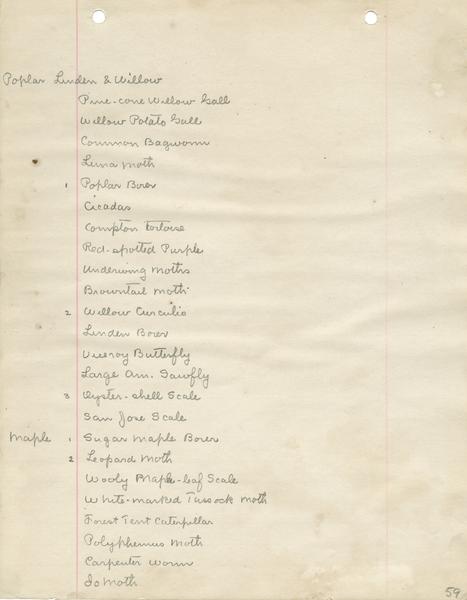 Poplar Linden & Willow
Pine-cone Willow Gall
Willow Potato Gall
Common Bagworm
Luna Moth
1 Poplar Borer
Cicadas
Compton tortoise
Red-spotted Purple
Underwing Moths
Browntail Moth
2 Willow Curculio
Linden Borer
Viceroy Butterfly
Large Am. Sawfly
3 Oyster-shell Scale
San Jose Scale
Maple 1 Sugar Maple Borer
2 Leopard Moth
Wooly Maple-leaf Scale
White-marked Tussock Moth
Forest Tent Caterpillar
Polyphemus Moth
Carpenter Worm
Io Moth
59